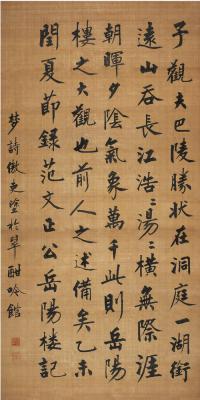 予觀夫巴陵勝狀在洞庭一湖銜
遠山吞長江浩〻湯〻橫無際涯
朝暉夕陰氣象萬千此則岳陽
樓之大觀也前人之述備矣乙未
閏夏節錄范文正公岳陽樓記
夢詩傲吏塗於翠酣吟館